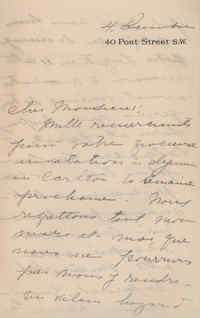 4 Décembre
40 Pont Street S.W.
Cher Monsieur,
Mille remerciments
pour votre gracieuse
invitation à dejeuner
au Carlton la semaine
prochaine. Nous
regrettons tout mon
mari et moi que
nous ne pourrons
pas nous y rendre